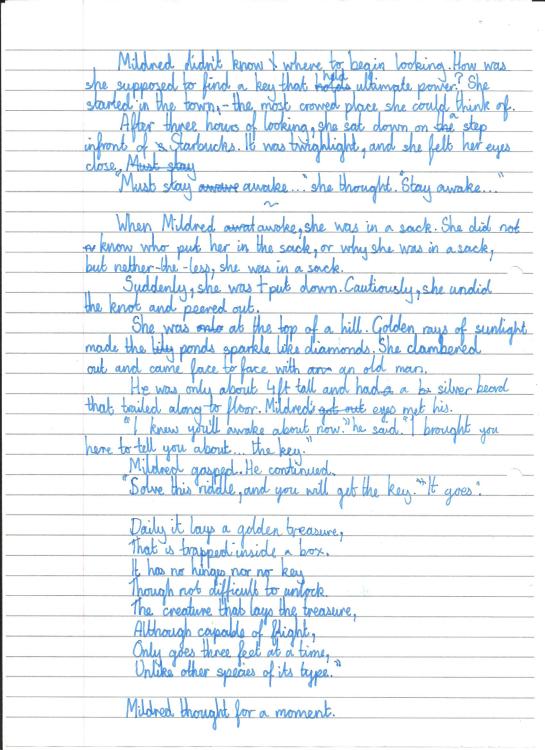 Mildred didn't know where to begin looking. How was
she supposed to find a key that held ultimate power? She
started in the town, - the most crowed place she could think of.
After three hours of looking, she sat down on a step
infront of Starbucks. It was twighlight, and she felt her eyes
close. Must stay
"Must stay awake..." she thought. "Stay awake..."
~
When Mildred awoke, she was in a sack. She did not
know who put her in the sack, or why she was in a sack,
but nether-the-less, she was in a sack.
Suddenly, she was put down. Cautiously, she undid
the knot and peered out.
She was at the top of a hill. Golden rays of sunlight
made the ponds sparkle like diamonds. She clambered
out and came face to face with an old man.
He was only about 4ft tall and had a silver beard
that trailed along to floor. Mildred's eyes met his.
"I knew you'll awake about now." he said. "I brought you
here to tell you about... the key."
Mildred gasped. He continued.
"Solve this riddle, and you will get the key." "It goes":
Daily it lays a golden treasure,
That is trapped inside a box.
It has no hinges nor no key
Though not difficult to unlock.
The creature that lays the treasure,
Although capable of flight,
Only goes three feet at a time,
Unlike other species of its type."
Mildred thought for a moment.